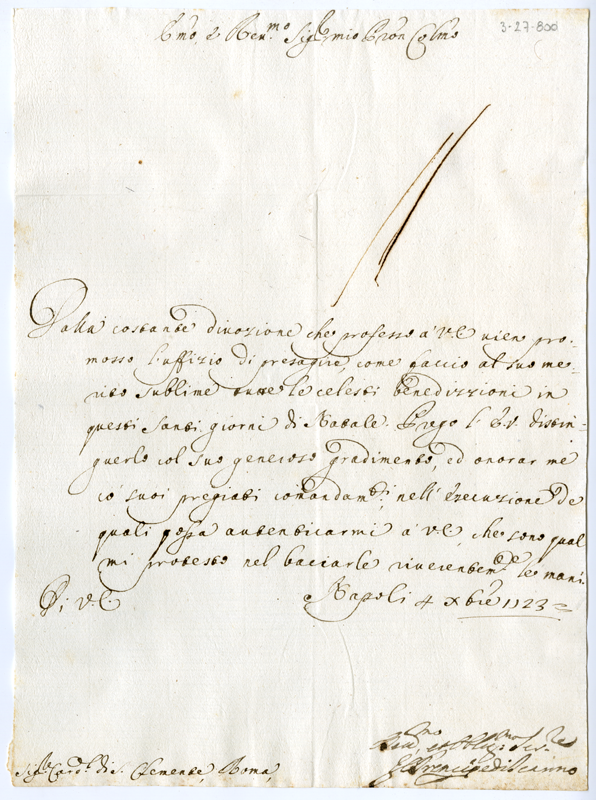 3-27-800
Emo, e Rev.mo Sig.r mio Pron Colmo
Dalla costante divozione che professo à V.E. vien pro-
mosso l'uffizio di presagire, come faccio al suo me-
rito sublime tutte le celesti benedizzioni in
questi santi giorni di Natale. Prego l'E.V. distin-
guerlo col suo generoso gradimento, ed onorar me
co' suoi pregiati comandam.ti, nell'esecuzione de
quali possa autenticarmi à V.E. che sono qual
mi protesto nel bacciarle riverentem.te le mani.
Di V.E.
Napoli 4 Xbre 1723
Sig.r Card.l di S. Clemente, Roma,
Ser.re
Il Principe di